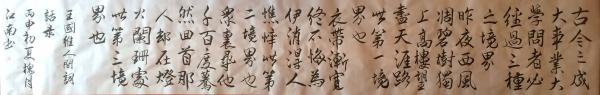 古今之成
大事業大
學問者必
經過三種
之境界
昨夜西風
凋碧樹獨
上高樓望
盡天涯路
此第一境
界也
衣帶漸寬
終不悔為
伊消得人
憔悴此第
二境界也
衆裏尋他
千百度驀
然回首那
人却在燈
火闌珊處
此第三境
界也
王國維人間詞
話录
丙申初夏
江南书